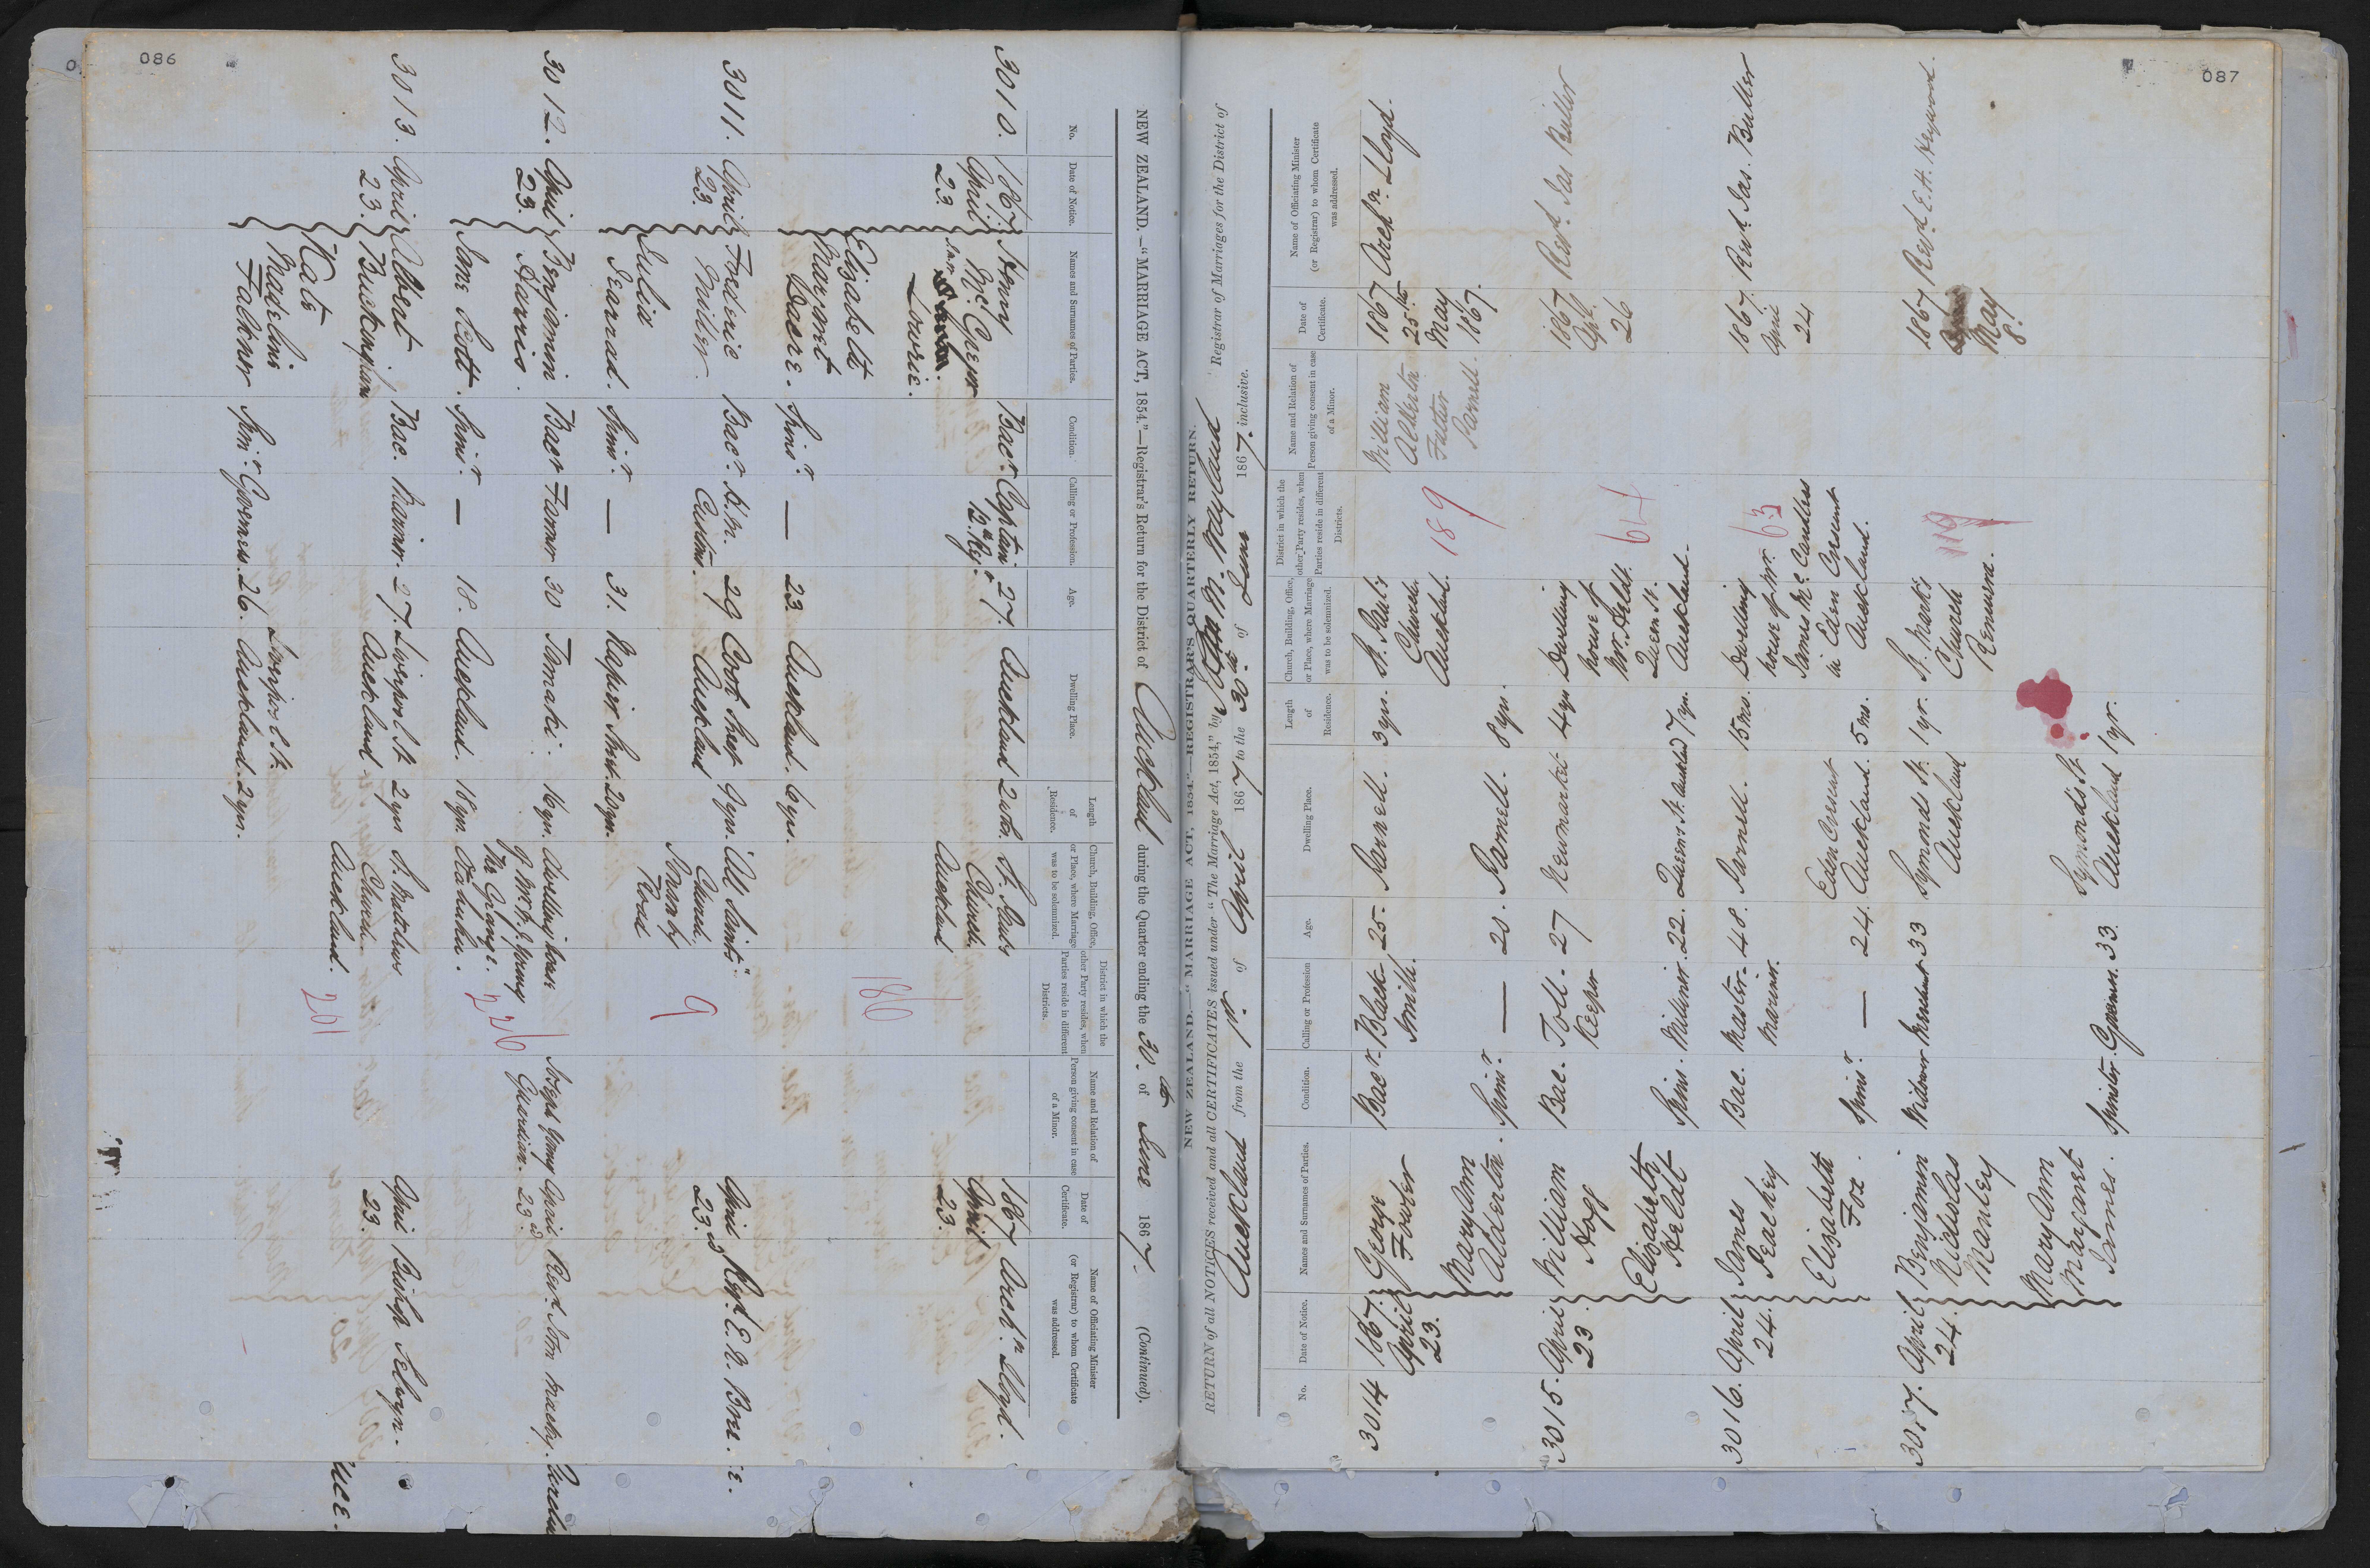 086
NEW ZEALAND.—"MARRIAGE ACT, 1854."—Registrar's Return for the District of Auckland during the Quarter ending the 30th of June 1867. (Continued).
No.
Date of Notice.
Names and Surnames of Parties.
Condition.
Calling or Profession.
Age.
Dwelling Place.
Length
of
Residence.
Church, Building, Office,
or Place, where Marriage
was to be solemnized.
District in which the
other Party resides, when
Parties reside in different
Districts.
Name and Relation of
Person giving consent in case
of a Minor.
Date of
Certificate.
Name of Officiating Minister
(or Registrar) to whom Certificate
was addressed.
3010. 1867. Henry Bacr. Captain 27. Auckland 2 wks. St. Pauls 1867 Archn. Lloyd.
April McGregor 12th Regt. Church April
23. Auckland 23.
Lowrie.
186
Elizabeth
Margaret
Dacre. Spinr. — 23. Auckland. 6 yrs.
3011. April Frederic Bacr. H.M. 29 Cook Street 9 yrs. "All Saints" April Revd. E. N. Bree.
23. Miller. Customs. Auckland Church 23.
Ponsonby
Road
9
Julia
Gearrad. Spinr. — 31. Napier Street. 20 yrs.
3012. April Benjamin Bacr Farmer 30 Tamaki. 16 yrs. dwelling house Joseph Young April Revd. John Macky.
23. Harris. of Mr. J. Young Guardian. 23d
The Grange.
226
Jane Scott. Spinr. — 18. Auckland. 18 yrs. Otahuhu.
3013. April Albert Bac. Mariner. 27. Liverpool St 2 yrs St. Matthews April Bishop Selwyn.
23. Buckingham Auckland Church 23.
Auckland.
201
Kate
Madeline Liverpool St.
Falkner Spinr. Governess. 26. Auckland. 2 yrs.
087
NEW ZEALAND.—"MARRIAGE ACT, 1854."—REGISTRAR'S QUARTERLY RETURN.
RETURN of all NOTICES received and all CERTIFICATES issued under "The Marriage Act, 1854," by Registrar of Marriages for the District of
Auckland from the 1st. of April 1867 to the 30th of June 1867. inclusive.
No.
Date of Notice.
Names and Surnames of Parties.
Condition.
Calling or Profession
Age.
Dwelling Place.
Length
of
Residence.
Church, Building, Office,
or Place, where Marriage
was to be solemnized.
District in which the
other Party resides, when
Parties reside in different
Districts.
Name and Relation of
Person giving consent in case
of a Minor.
Date of
Certificate.
Name of Officiating Minister
(or Registrar) to whom Certificate
was addressed.
3014 1867. George Bacr. Black- 25- Parnell. 3 yrs. St. Paul's William 1867 Archn. Lloyd.
April Fowler smith. Church Alderton 25th
23. Auckland. Father May
189 Parnell. 1867.
Mary Ann
Alderton. Spinr. — 20. Parnell. 8 yrs.
3015. April William Bac. Toll- 27 Newmarket 4 yrs Dwelling 1867 Revd. Jas Buller
23. Hogg Keeper house of Apl.
Mr. Heldt. 26
64
Elizabeth Queen St.
Heldt Spins. Milliner. 22. Queen St. Auckland 7 yrs. Auckland.
3016. April James Bac. Master- 48. Parnell. 15 mo. Dwelling 1867. Revd. Jas. Buller
24. Peachey Mariner. house of Mr. 63 April
James McCandless 24
Elizabeth Eden Crescent in Eden Crescent
Fox. Spinr. — 24. Auckland. 5 mo. Auckland.
3017. April Benjamin Widower Merchant 33 Symonds St. 1 yr. St. Mark's 1867 Revd. E. H. Heywood.
24. Nicholas Auckland Church May
Manley Remuera. 8.
119
Mary Ann
Margaret Symonds St.
James. Spinster. Governess. 33. Auckland 1 yr.